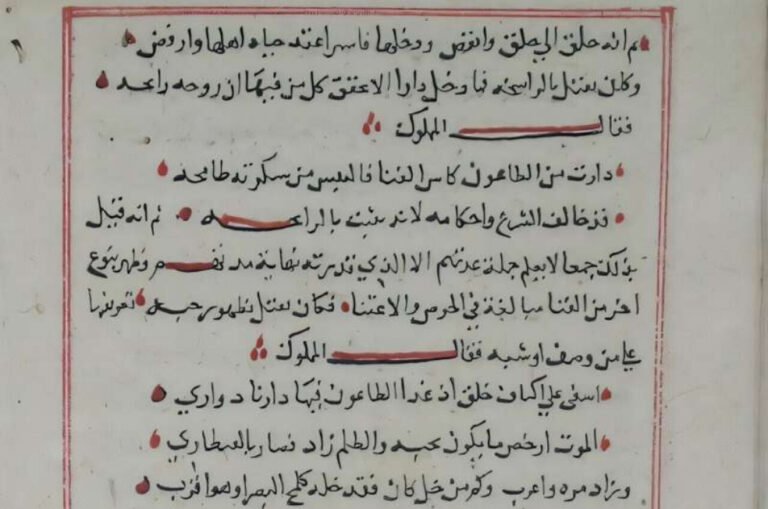 ثم انه حلق الى جلق وانغض ودخلها فاسرا عند حباه اهلها وارفض
وكان يقتل بالرايحه فما دخل دارا الا تحقق كل من فيها ان روحه رايحه
فقال المملوك
دارت من الطاعون كاس الفنا فالنفس من سكرته طافحه
قد خالف الشرع واحكامه لانه يثبت بالرايحه ثم انه قتل
بذلك جمعا لا يعلم جملة عدتهم الا الذي قدرته نهاية مدتهم وظهر بنوع
اخر من الفنا مبالغة في الحرص والاعتنا فكان يقتل بظهور حبه
على من وصف او شبه فقال المملوك
اسفي على اكناف جلق اذ غدا الطاعون فيها ذا زناد واري
الموت ارخص ما يكون بحبه والظلم زاد فصار بالقنطاري
وزاد مره واعرب وكم من خل كان فقد خله كلمح البصر او هو اقرب